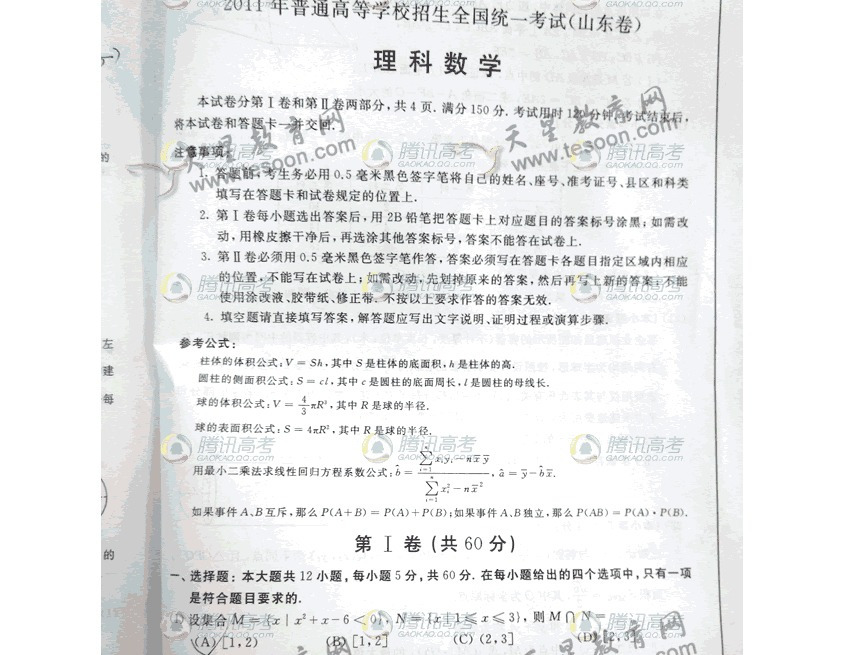 2011年普通高等学校招生全国统一考试(山东卷)
理科数学
本试卷分第Ⅰ卷和第Ⅱ卷两部分,共4页.满分150分.考试用时120分钟.考试结束后,
将本试卷和答题卡一并交回.
注意事项:
1. 答题前,考生务必用0.5毫米黑色签字笔将自己的姓名、座号、准考证号、县区和科类
填写在答题卡和试卷规定的位置上.
2. 第Ⅰ卷每小题选出答案后,用2B铅笔把答题卡上对应题目的答案标号涂黑;如需改
动,用橡皮擦干净后,再选涂其他答案标号,答案不能答在试卷上.
3. 第Ⅱ卷必须用0.5毫米黑色签字笔作答,答案必须写在答题卡各题目指定区域内相应
的位置,不能写在试卷上;如需改动,先划掉原来的答案,然后再写上新的答案;不能
使用涂改液、胶带纸、修正带.不按以上要求作答的答案无效.
4. 填空题请直接填写答案,解答题应写出文字说明、证明过程或演算步骤.
参考公式:
柱体的体积公式:V = Sh,其中S是柱体的底面积,h是柱体的高.
圆柱的侧面积公式:S = cl,其中c是圆柱的底面周长,l是圆柱的母线长.
球的体积公式:V = 4/3 πR³,其中R是球的半径.
球的表面积公式:S = 4πR²,其中R是球的半径.
用最小二乘法求线性回归方程系数公式:b̂ = (∑_{i=1}^{n} x_i y_i − n x̄ ȳ)/(∑_{i=1}^{n} x_i² − n x̄²), â = ȳ − b̂x̄.
如果事件A、B互斥,那么P(A+B) = P(A)+P(B);如果事件A、B独立,那么P(AB) = P(A)·P(B).
第Ⅰ卷(共60分)
一、选择题:本大题共12小题,每小题5分,共60分.在每小题给出的四个选项中,只有一项
是符合题目要求的.
(1) 设集合 M = {x | x²+x−6 < 0}, N = {x | 1 ⩽ x ⩽ 3}, 则 M ∩ N =
(A) [1,2) (B) [1,2] (C) (2,3] (D) [2,3]
的
左
建
每
的
天星教育网
www.tesoon.com
天星教育网
www.tesoon.com
天星教育网
腾讯高考
GAOKAO.QQ.COM
腾讯高考
GAOKAO.QQ.COM
腾讯高考
GAOKAO.QQ.COM
腾讯高考
GAOKAO.QQ.COM
腾讯高考
GAOKAO.QQ.COM
腾讯高考
GAOKAO.QQ.COM
腾讯高考
GAOKAO.QQ.COM
腾讯高考
GAOKAO.QQ.COM
腾讯高考
GAOKAO.QQ.COM